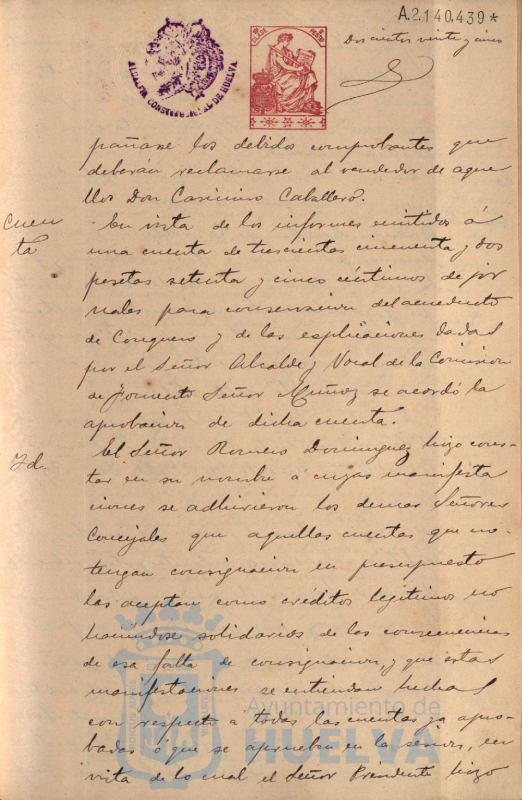 A.2.140.439*
Doscientos veinte y cinco
ALCALDIA CONSTITUCIONAL DE HUELVA
pañarse los debidos comprobantes que
deberán reclamarse al vendedor de aque
llos Don Casimiro Caballero.
Cuen
ta
En vista de los informes emitidos á
una cuenta de trescientas cincuenta y dos
pesetas setenta y cinco céntimos de jor
nales para conservacion del acueducto
de Conquero y de las esplicaciones dadas
por el Señor Alcalde y Vocal de la Comision
de Fomento Señor Muñoz se acordó la
aprobacion de dicha cuenta.
Id.
El Señor Romero Dominguez hizo cons-
tar en su nombre á cuyas manifesta
ciones se adhirieron los demas Señores
Concejales que aquellas cuentas que no
tengan consignacion en presupuesto
las aceptan como créditos legitimos no
haciéndose solidarios de las consecuencias
de esa falta de consignacion, y que estas
manifestaciones se entiendan hechas
con respecto a todas las cuentas ya apro-
badas ó que se aprueben en la sesion, en
vista de lo cual el Señor Presidente hizo
Ayuntamiento de
HUELVA